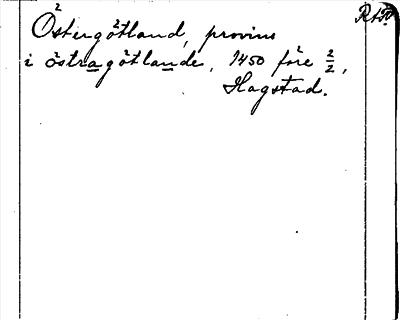 Östergötland, provins
i östragötlande, 1450 före 2/2,
Hagstad.